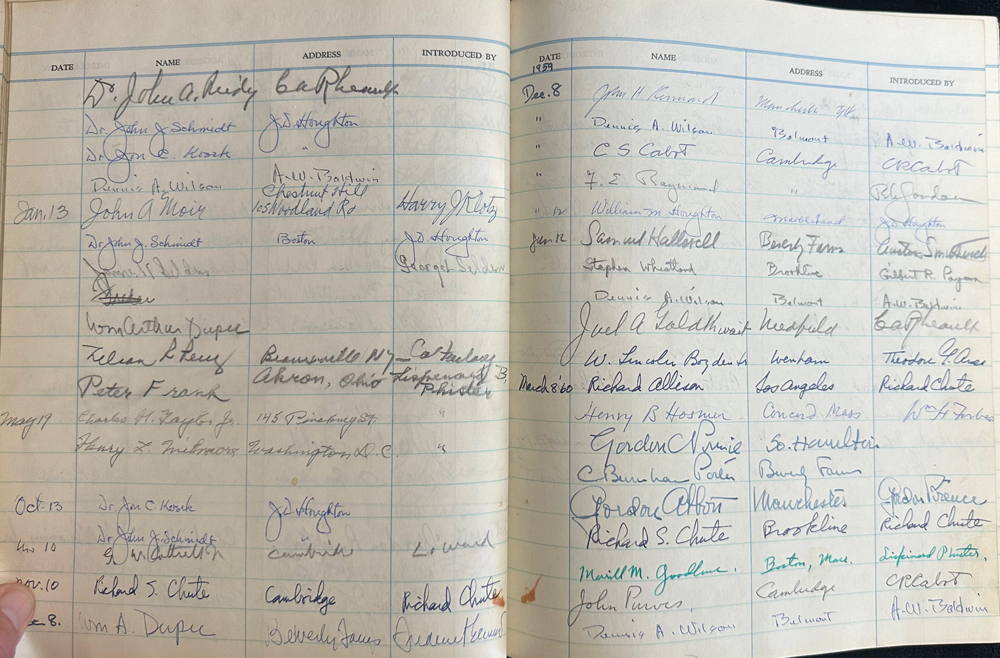 DATE NAME ADDRESS INTRODUCED BY
Dr. John A.
Dr. John J. Schmidt J.D. Houghton
Dr. Jon C. "
Dennis A. Wilson A.W. Baldwin
Chestnut Hill
Jan. 13 John A Moir 105 Woodland Rd Harry J Klotz
Dr John J. Schmidt Boston J.D. Houghton
George Selden
Wm Arthur Dupee
N.Y.
Peter F. Frank Akron, Ohio
May 19 Charles H. Taylor Jr. 145 Pinckney St. "
Henry L. Washington D.C. "
Oct. 13 Dr. Jon C. J.D. Houghton
Dr. John J. Schmidt
Nov 10
Nov. 10 Richard S. Chute Cambridge Richard Chute
8. Wm A. Dupee Beverly Farms
DATE NAME ADDRESS INTRODUCED BY
1959
Dec. 8 John H Kennard Manchester
" Dennis A. Wilson Belmont A.W. Baldwin
" C S Cabot Cambridge CRCabot
" F. E Raymond "
" 12 William M Houghton Marblehead J D Houghton
Jan. 12 Samuel Hallowell Beverly Farms
Stephen Wheatland Brookline Gilbert R. Payson
Dennis A. Wilson Belmont A.W. Baldwin
Joel A Goldthwait Medfield
W. Lincoln Boyden Jr Wenham Theodore
March 8 60 Richard Allison Los Angeles Richard Chute
Henry B Hosmer Concord Mass Wm H Forbes
Gordon C Prince So. Hamilton
C Burnham Porter Beverly Farms
Gordon Abbott Manchester Gordon Prince
Richard S. Chute Brookline Richard Chute
Merrill M. Boston, Mass.
John Purves. Cambridge CRCabot
Dennis A. Wilson Belmont A.W. Baldwin